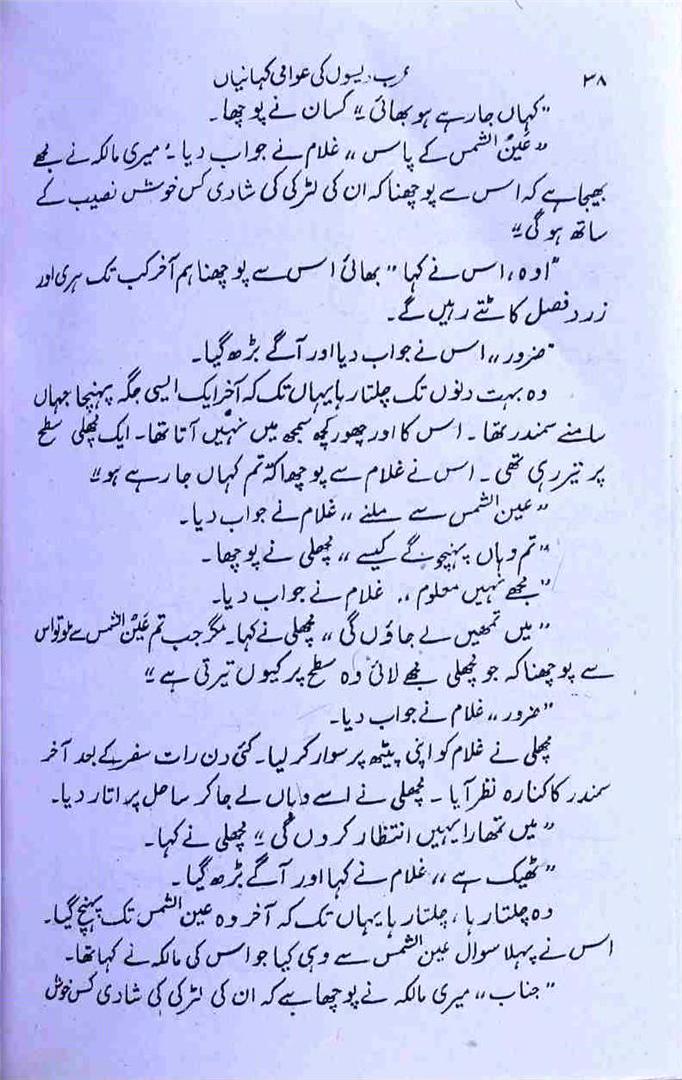 ۳۸ عرب دیسوں کی عوامی کہانیاں
"کہاں جا رہے ہو بھائی" کسان نے پوچھا۔
"عینُ الشمس کے پاس" غلام نے جواب دیا۔ میری مالکہ نے مجھے
بھیجا ہے کہ اس سے پوچھنا کہ ان کی لڑکی کی شادی کس خوش نصیب کے
ساتھ ہوگی"
"اوہ، اس نے کہا" بھائی اس سے پوچھنا ہم آخر کب تک ہری اور
زرد فصل کاٹتے رہیں گے۔
"ضرور" اس نے جواب دیا اور آگے بڑھ گیا۔
وہ بہت دنوں تک چلتا رہا یہاں تک کہ آخر ایک ایسی جگہ پہنچا جہاں
سامنے سمندر تھا۔ اس کا اور چھور کچھ سمجھ میں نہیں آتا تھا۔ ایک مچھلی سطح
پر تیر رہی تھی۔ اس نے غلام سے پوچھا کہ تم کہاں جا رہے ہو"
"عین الشمس سے ملنے" غلام نے جواب دیا۔
"تم وہاں پہنچو گے کیسے" مچھلی نے پوچھا۔
"مجھے نہیں معلوم" غلام نے جواب دیا۔
"میں تمھیں لے جاؤں گی" مچھلی نے کہا۔ مگر جب تم عینُ الشمس سے ملو تو اس
سے پوچھنا کہ جو مچھلی مجھے لائی وہ سطح پر کیوں تیرتی ہے"
"ضرور" غلام نے جواب دیا۔
مچھلی نے غلام کو اپنی پیٹھ پر سوار کر لیا۔ کئی دن رات سفر کے بعد آخر
سمندر کا کنارہ نظر آیا۔ مچھلی نے اسے وہاں لے جا کر ساحل پر اتار دیا۔
"میں تمھارا یہیں انتظار کروں گی" مچھلی نے کہا۔
"ٹھیک ہے" غلام نے کہا اور آگے بڑھ گیا۔
وہ چلتا رہا، چلتا رہا یہاں تک کہ آخر وہ عین الشمس تک پہنچ گیا۔
اس نے پہلا سوال عین الشمس سے وہی کیا جو اس کی مالکہ نے کہا تھا۔
"جناب" میری مالکہ نے پوچھا ہے کہ ان کی لڑکی کی شادی کس خوش